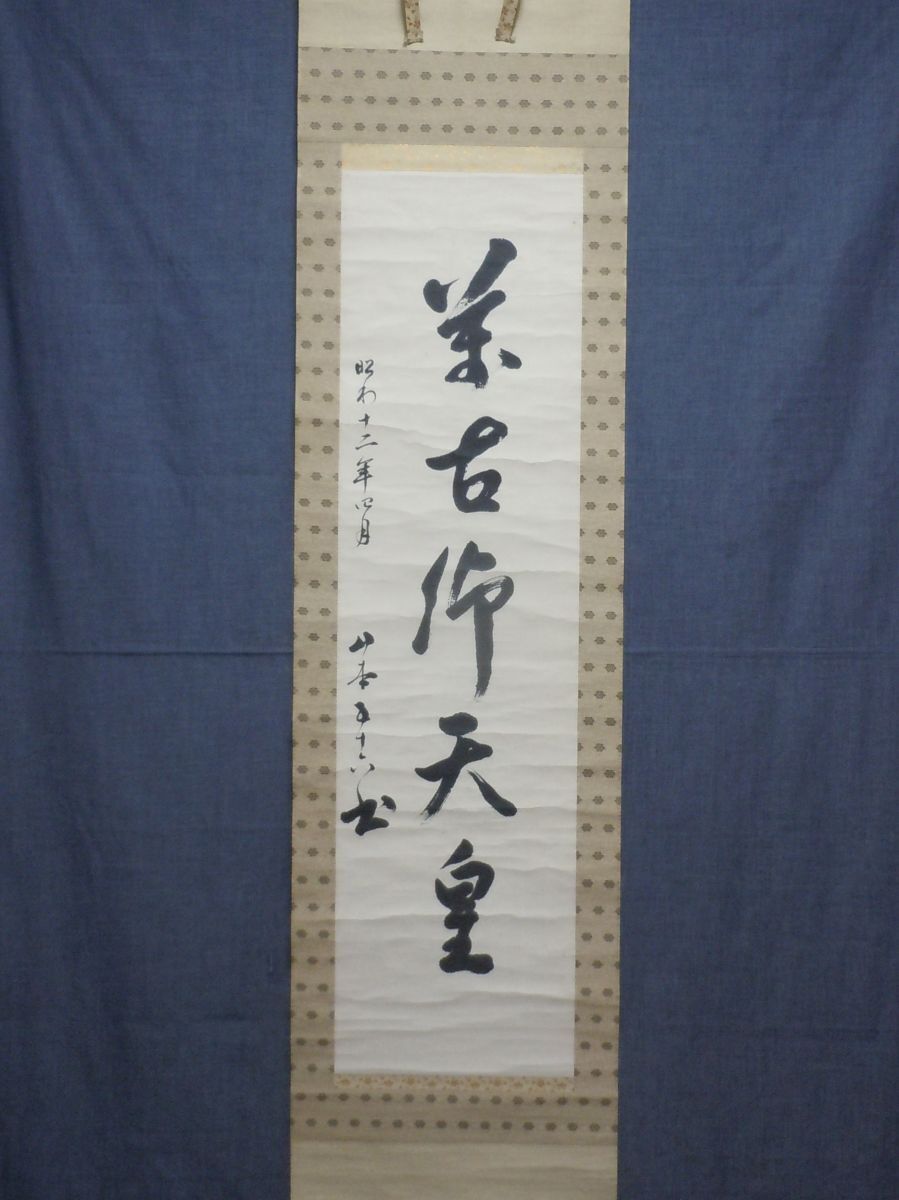 萬古仰天皇
昭和十二年四月
山本五十六書